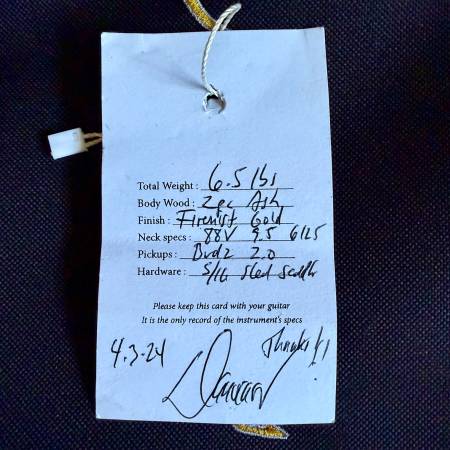 Total Weight : 6.5 lbs
Body Wood : 2pc Ash
Finish : Firemist Gold
Neck specs : 88V 9.5 6125
Pickups :  2.0
Hardware : S/16 steel saddle
Please keep this card with your guitar
It is the only record of the instrument's specs
4.3.24
Thanks